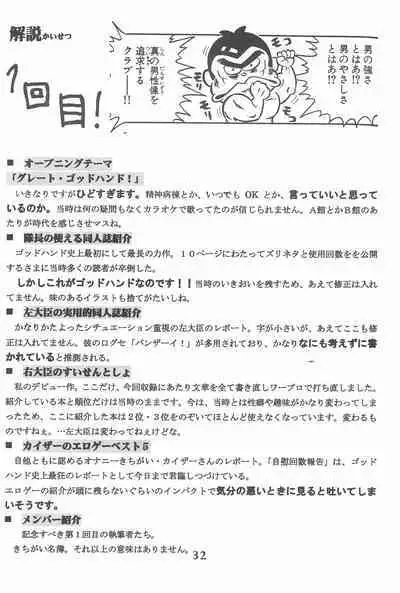 解説かいせつ
1回目!
男の強さ
とはあ!?
男のやさしさ
とはあ!?
真の男性像を
追求する
クラブー!!
■ オープニングテーマ
「グレート・ゴッドハンド!」
いきなりですがひどすぎます。精神病棟とか、いつでも OK とか、言っていいと思って
いるのか。当時は何の疑問もなくカラオケで歌ってたのが信じられません。A館とかB館のあ
たりが時代を感じさせマスね。
■ 隊長の使える同人誌紹介
ゴッドハンド史上最初にして最長の力作。10ページにわたってズリネタと使用回数をを公開
するさまに当時多くの読者が卒倒した。
しかしこれがゴッドハンドなのです!!当時のいきおいを残すため、あえて修正は入れ
てません。味のあるイラストも捨てがたいしね。
■ 左大臣の実用的同人誌紹介
かなりかたよったシチュエーション重視の左大臣のレポート。字が小さいが、あえてここも修
正は入れてません。彼のログセ「バンザーイ!」が多用されており、かなりなにも考えずに書
かれていると推測される。
■ 右大臣のすいせんとしょ
私のデビュー作。ここだけ、今回収録にあたり文章を全て書き直しワープロで打ち直しました。
紹介している本と順位だけは当時のままです。今は、当時とは性癖や趣味がかなり変わってしま
ったため、ここに紹介した本は2位・3位をのぞいてほとんど使えなくなっています。変わるも
のですねぇ。…左大臣は変わってねぇけどな。
■ カイザーのエロゲーベスト5
自他ともに認めるオナニーきちがい・カイザーさんのレポート。「自慰回数報告」は、ゴッド
ハンド史上最狂のレポートとして今日まで君臨しつづけている。
エロゲーの紹介が頭に残らないぐらいのインパクトで気分の悪いときに見ると吐いてしま
いそうです。
■ メンバー紹介
記念すべき第1回目の執筆者たち。
きちがい名簿。それ以上の意味はありません。
32